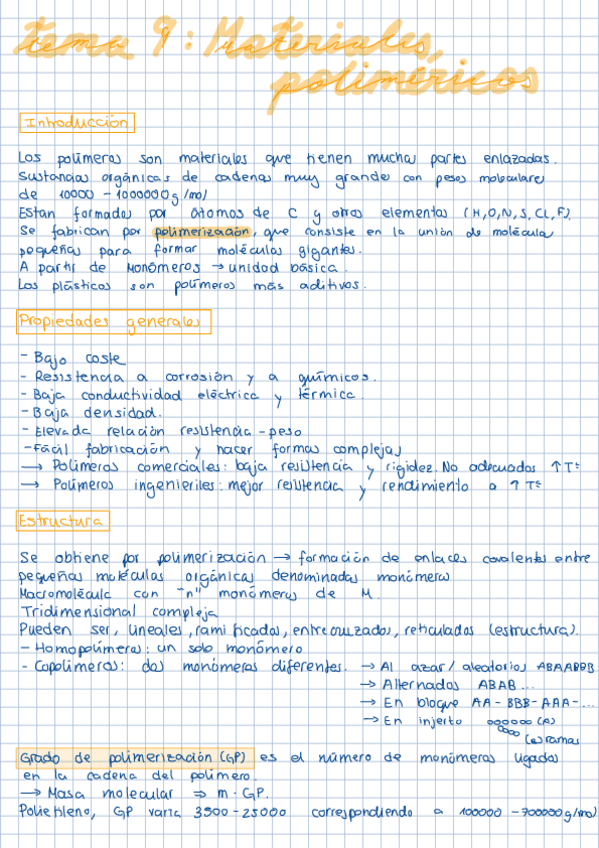 tema 9: Materiales
poliméricos
Introducción
Los polímeros son materiales que tienen muchas partes enlazadas.
Sustancias orgánicas de cadenas muy grandes con pesos moleculares
de 10000 - 1000000 g/mol
Estan formados por átomos de C y otros elementos (H,O,N,S,CL,F).
Se fabrican por polimerización, que consiste en la unión de molécula
pequeñas para formar moléculas gigantes.
A partir de Monómeros → unidad básica.
Los plásticos son polímeros más aditivos.
Propiedades generales
- Bajo coste
- Resistencia a corrosión y a químicos.
- Baja conductividad eléctrica y térmica.
- Baja densidad.
- Elevada relación resistencia - peso
- Fácil fabricación y hacer formas complejas
→ Polímeros comerciales: baja resistencia y rigidez. No adecuados ↑Tª
→ Polímeros ingenieriles: mejor resistencia y rendimiento a ↑ Tª
Estructura
Se obtiene por polimerización → formación de enlaces covalentes entre
pequeñas moléculas orgánicas denominadas monómeros
Macromolécula con "n" monómeros de M.
Tridimensional compleja
Pueden ser, lineales, ramificados, entrecruzados, reticulados (estructura).
- Homopolímeros: un solo monómero
- Copolímeros: dos monómeros diferentes. → Al azar/aleatorios ABAABBB
→ Alternados ABAB...
→ En bloque AA-BBB-AAA-...
→ En injerto oooooo (A)
ooo (B) ramas
Grado de polimerización (GP) es el número de monómeros ligados
en la cadena del polímero.
→ Masa molecular ⇒ m · GP.
Polietileno, GP varía 3500-25000 correspondiendo a 100000 - 700000g/mol